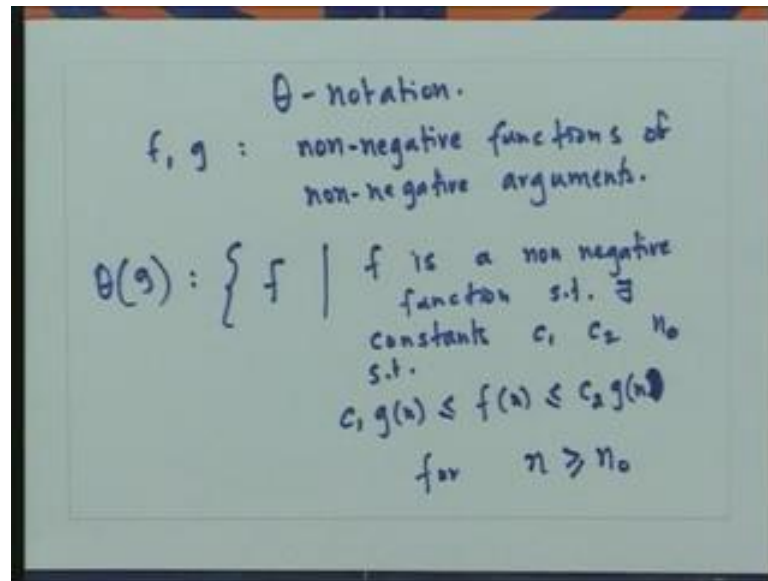 θ - notation.
f, g : non-negative functions of
non-negative arguments.
θ(g) : { f | f is a non negative
function s.t. ∃
constants c₁ c₂ n₀
s.t.
c₁ g(n) ≤ f(n) ≤ c₂ g(n)
for n ≥ n₀